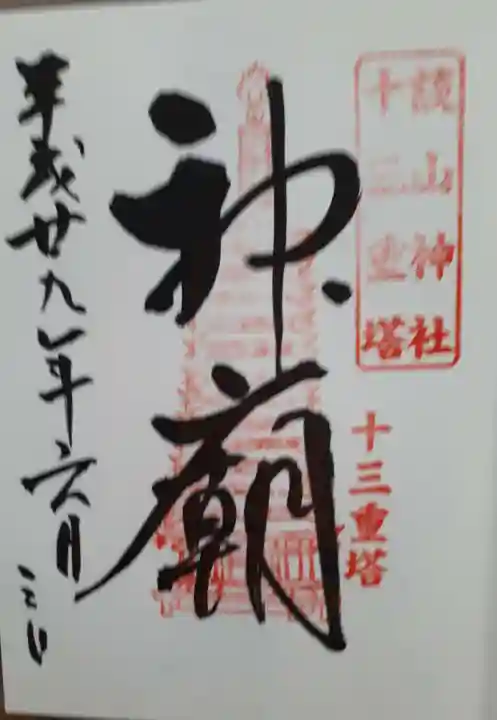 談山神社
十三重塔
十三重塔
神廟
平成廿九年六月三日